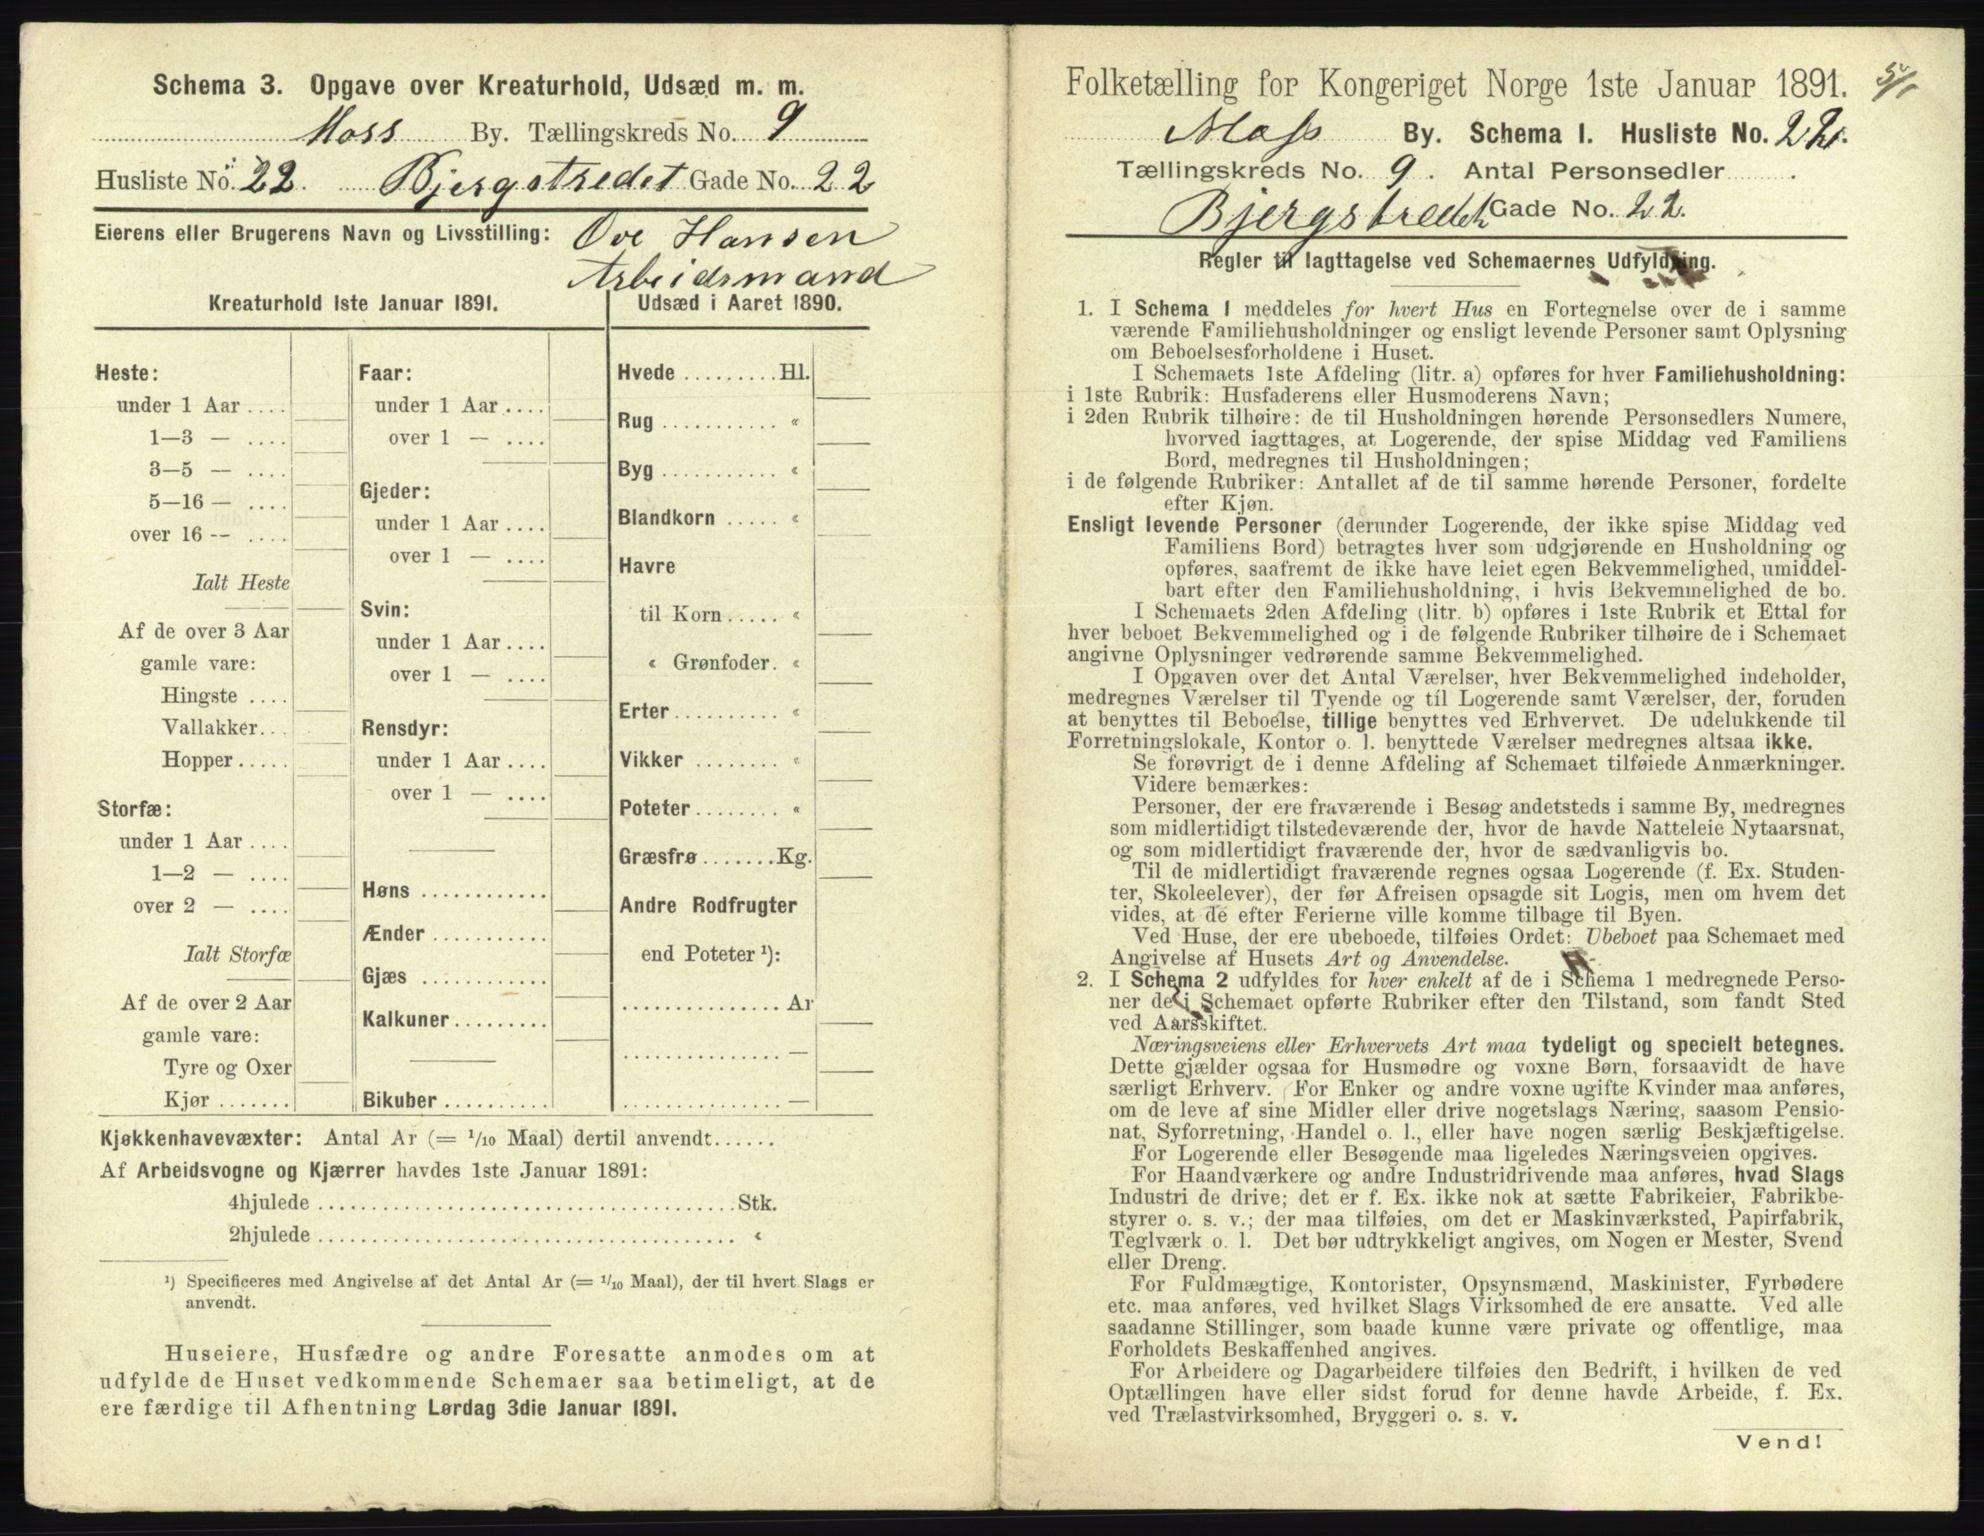 Schema 3. Opgave over Kreaturhold, Udsæd m. m.
Moss By. Tællingskreds No. 9
Husliste No. 22. Bjergstredet Gade No. 22
Eierens eller Brugerens Navn og Livsstilling: Ove Hansen
Arbeidsmand
Kreaturhold 1ste Januar 1891.
Heste:
under 1 Aar ....
1—3 — ....
3—5 — ....
5—16 — ....
over 16 -- ....
Ialt Heste
Af de over 3 Aar
gamle vare:
Hingste ....
Vallakker...
Hopper.....
Storfæ:
under 1 Aar ....
1—2 — ....
over 2 — ....
Ialt Storfæ
Af de over 2 Aar
gamle vare:
Tyre og Oxer
Kjør .......
Faar:
under 1 Aar ....
over 1 — ....
Gjeder:
under 1 Aar ....
over 1 — ....
Svin:
under 1 Aar ....
over 1 — ....
Rensdyr:
under 1 Aar ....
over 1 — ....
Høns ............
Ænder ...........
Gjæs ............
Kalkuner.........
Bikuber ..........
Udsæd i Aaret 1890.
Hvede .........Hl.
Rug ........... «
Byg ........... «
Blandkorn ..... «
Havre
til Korn ..... «
« Grønfoder. «
Erter.......... «
Vikker ........ «
Poteter........ «
Græsfrø.......Kg.
Andre Rodfrugter
end Poteter ¹):
............... Ar
............... —
............... —
Kjøkkenhavevæxter: Antal Ar (= 1/10 Maal) dertil anvendt......
Af Arbeidsvogne og Kjærrer havdes 1ste Januar 1891:
4hjulede ........................................Stk.
2hjulede ........................................ «
¹) Specificeres med Angivelse af det Antal Ar (= 1/10 Maal), der til hvert Slags er
anvendt.
Huseiere, Husfædre og andre Foresatte anmodes om at
udfylde de Huset vedkommende Schemaer saa betimeligt, at de
ere færdige til Afhentning Lørdag 3die Januar 1891.
Folketælling for Kongeriget Norge 1ste Januar 1891. 5/1
Moss By. Schema 1. Husliste No. 22.
Tællingskreds No. 9. Antal Personsedler ........ .
Bjergstredet Gade No. 22.
Regler til Iagttagelse ved Schemaernes Udfyldning.
1. I Schema 1 meddeles for hvert Hus en Fortegnelse over de i samme
værende Familiehusholdninger og ensligt levende Personer samt Oplysning
om Beboelsesforholdene i Huset.
I Schemaets 1ste Afdeling (litr. a) opføres for hver Familiehusholdning:
i 1ste Rubrik: Husfaderens eller Husmoderens Navn;
i 2den Rubrik tilhøire: de til Husholdningen hørende Personsedlers Numere,
hvorved iagttages, at Logerende, der spise Middag ved Familiens
Bord, medregnes til Husholdningen;
i de følgende Rubriker: Antallet af de til samme hørende Personer, fordelte
efter Kjøn.
Ensligt levende Personer (derunder Logerende, der ikke spise Middag ved
Familiens Bord) betragtes hver som udgjørende en Husholdning og
opføres, saafremt de ikke have leiet egen Bekvemmelighed, umiddel-
bart efter den Familiehusholdning, i hvis Bekvemmelighed de bo.
I Schemaets 2den Afdeling (litr. b) opføres i 1ste Rubrik et Ettal for
hver beboet Bekvemmelighed og i de følgende Rubriker tilhøire de i Schemaet
angivne Oplysninger vedrørende samme Bekvemmelighed.
I Opgaven over det Antal Værelser, hver Bekvemmelighed indeholder,
medregnes Værelser til Tyende og til Logerende samt Værelser, der, foruden
at benyttes til Beboelse, tillige benyttes ved Erhvervet. De udelukkende til
Forretningslokale, Kontor o. l. benyttede Værelser medregnes altsaa ikke.
Se forøvrigt de i denne Afdeling af Schemaet tilføiede Anmærkninger.
Videre bemærkes:
Personer, der ere fraværende i Besøg andetsteds i samme By, medregnes
som midlertidigt tilstedeværende der, hvor de havde Natteleie Nytaarsnat,
og som midlertidigt fraværende der, hvor de sædvanligvis bo.
Til de midlertidigt fraværende regnes ogsaa Logerende (f. Ex. Studen-
ter, Skoleelever), der før Afreisen opsagde sit Logis, men om hvem det
vides, at de efter Ferierne ville komme tilbage til Byen.
Ved Huse, der ere ubeboede, tilføies Ordet: Ubeboet paa Schemaet med
Angivelse af Husets Art og Anvendelse.
2. I Schema 2 udfyldes for hver enkelt af de i Schema 1 medregnede Perso-
ner de i Schemaet opførte Rubriker efter den Tilstand, som fandt Sted
ved Aarsskiftet.
Næringsveiens eller Erhvervets Art maa tydeligt og specielt betegnes.
Dette gjælder ogsaa for Husmødre og voxne Børn, forsaavidt de have
særligt Erhverv. For Enker og andre voxne ugifte Kvinder maa anføres,
om de leve af sine Midler eller drive nogetslags Næring, saasom Pensio-
nat, Syforretning, Handel o. l., eller have nogen særlig Beskjæftigelse.
For Logerende eller Besøgende maa ligeledes Næringsveien opgives.
For Haandværkere og andre Industridrivende maa anføres, hvad Slags
Industri de drive; det er f. Ex. ikke nok at sætte Fabrikeier, Fabrikbe-
styrer o. s. v.; der maa tilføies, om det er Maskinværksted, Papirfabrik,
Teglværk o. l. Det bør udtrykkeligt angives, om Nogen er Mester, Svend
eller Dreng.
For Fuldmægtige, Kontorister, Opsynsmænd, Maskinister, Fyrbødere
etc. maa anføres, ved hvilket Slags Virksomhed de ere ansatte. Ved alle
saadanne Stillinger, som baade kunne være private og offentlige, maa
Forholdets Beskaffenhed angives.
For Arbeidere og Dagarbeidere tilføies den Bedrift, i hvilken de ved
Optællingen have eller sidst forud for denne havde Arbeide, f. Ex.
ved Trælastvirksomhed, Bryggeri o. s. v.
Vend!